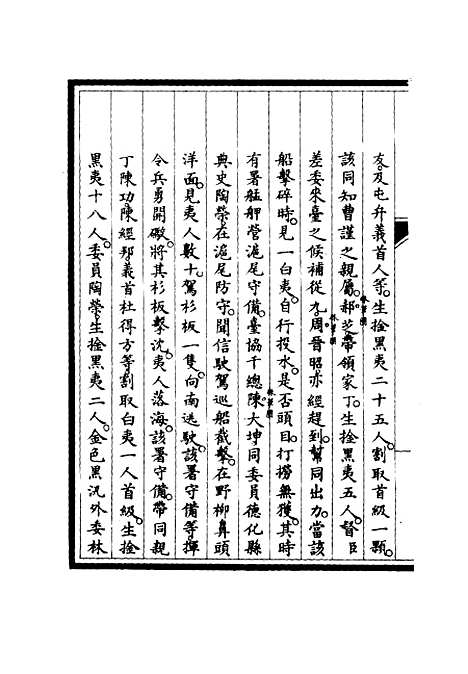 友及屯弁義首人等生擒黑夷二十五人割取首級一顆
該同知曹謹之親屬郝芝帶領家丁生擒黑夷五人督臣
差委來臺之候補從九周晉昭亦經趕到幫同出力當該
船擊碎時見一白夷自行投水是否頭目打撈無獲其時
有署艋舺營滬尾守備臺協千總陳大坤同委員德化縣
典史陶榮在滬尾防守聞信駛駕巡船截擊在野柳鼻頭
洋面見夷人數十駕杉板一隻向南逃駛該署守備等揮
令兵勇開礮將其杉板擊沈夷人落海該署守備帶同親
丁陳功陳經邦義首杜得方等割取白夷一人首級生擒
黑夷十八人委員陶榮生擒黑夷二人金色黑汛外委林